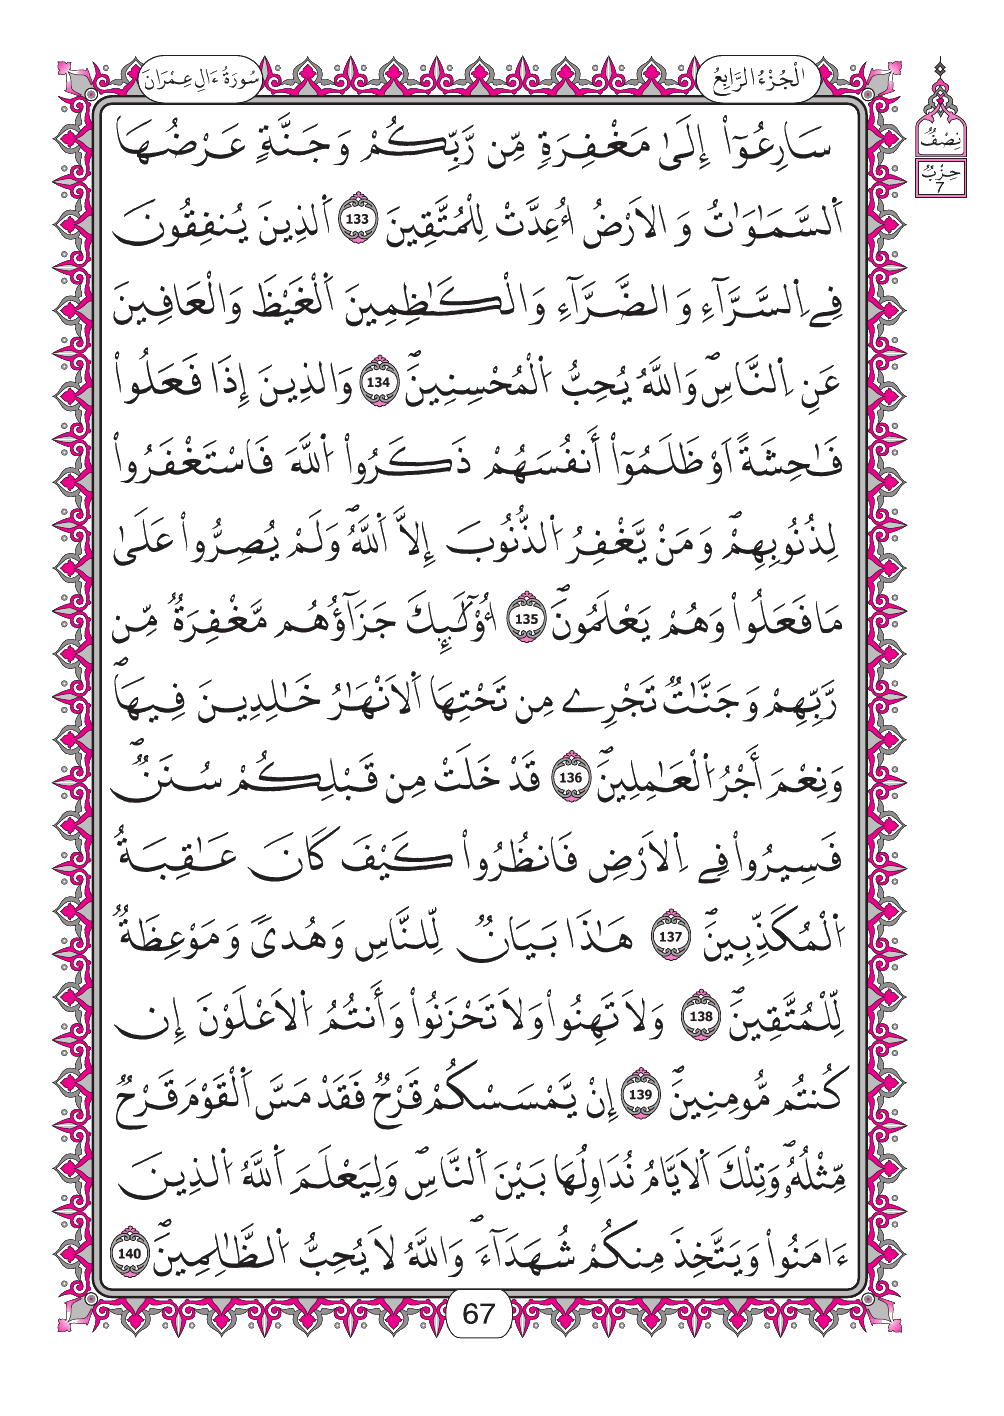 سُورَةُ ءَالِ عِمْرَانَ
اَلْجُزْءُ الرَّابِعُ
نِصْفُ
حِزْبُ
7
سَارِعُوٓاْ إِلَىٰ مَغْفِرَةٍ مِّن رَّبِّكُمْ وَجَنَّةٍ عَرْضُهَا
اَ۬لسَّمَٰوَٰتُ وَالَارْضُ أُعِدَّتْ لِلْمُتَّقِينَ 133 اَ۬لذِينَ يُنفِقُونَ
فِے اِ۬لسَّرَّآءِ وَالضَّرَّآءِ وَالْكَٰظِمِينَ اَ۬لْغَيْظَ وَالْعَافِينَ
عَنِ اِ۬لنَّاسِۖ وَاللَّهُ يُحِبُّ اُ۬لْمُحْسِنِينَۖ 134 وَالذِينَ إِذَا فَعَلُواْ
فَٰحِشَةً اَوْ ظَلَمُوٓاْ أَنفُسَهُمْ ذَكَرُواْ اُ۬للَّهَ فَاسْتَغْفَرُواْ
لِذُنُوبِهِمْۖ وَمَنْ يَّغْفِرُ اُ۬لذُّنُوبَ إِلَّا اَ۬للَّهُۖ وَلَمْ يُصِرُّواْ عَلَىٰ
مَا فَعَلُواْ وَهُمْ يَعْلَمُونَۖ 135 أُوْلَٰٓئِكَ جَزَآؤُهُم مَّغْفِرَةٌ مِّن
رَّبِّهِمْ وَجَنَّٰتٌ تَجْرِے مِن تَحْتِهَا اَ۬لَانْهَٰرُ خَٰلِدِينَ فِيهَاۖ
وَنِعْمَ أَجْرُ اُ۬لْعَٰمِلِينَۖ 136 قَدْ خَلَتْ مِن قَبْلِكُمْ سُنَنٌۖ
فَسِيرُواْ فِے اِ۬لَارْضِ فَانظُرُواْ كَيْفَ كَانَ عَٰقِبَةُ
اُ۬لْمُكَذِّبِينَۖ 137 هَٰذَا بَيَانٌ لِّلنَّاسِ وَهُدىً وَمَوْعِظَةٌ
لِّلْمُتَّقِينَۖ 138 وَلَا تَهِنُواْ وَلَا تَحْزَنُواْ وَأَنتُمُ اُ۬لَاعْلَوْنَ إِن
كُنتُم مُّومِنِينَۖ 139 إِنْ يَّمْسَسْكُمْ قَرْحٌ فَقَدْ مَسَّ اَ۬لْقَوْمَ قَرْحٌ
مِّثْلُهُۥۖ وَتِلْكَ اَ۬لَايَّامُ نُدَاوِلُهَا بَيْنَ اَ۬لنَّاسِۖ وَلِيَعْلَمَ اَ۬للَّهُ اُ۬لذِينَ
ءَامَنُواْ وَيَتَّخِذَ مِنكُمْ شُهَدَآءَۖ وَاللَّهُ لَا يُحِبُّ اُ۬لظَّٰلِمِينَۖ 140
67